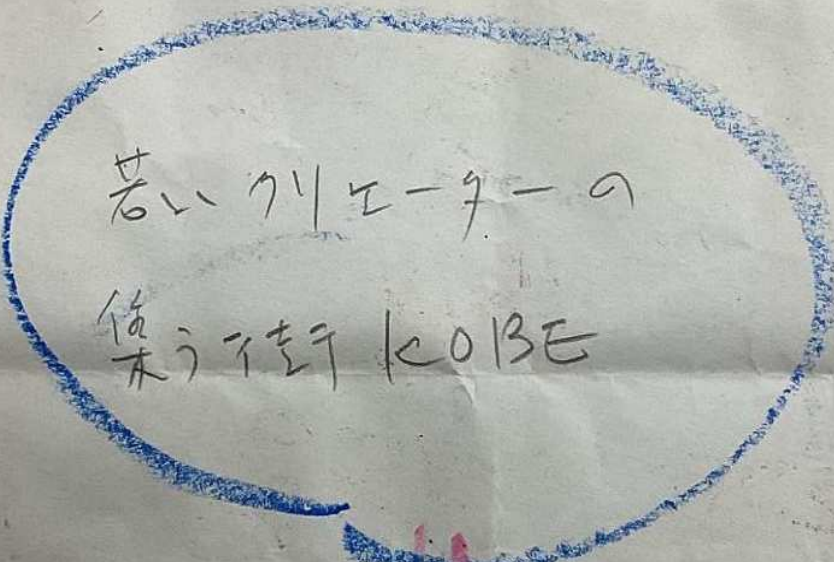 若いクリエーターの
集う街 KOBE